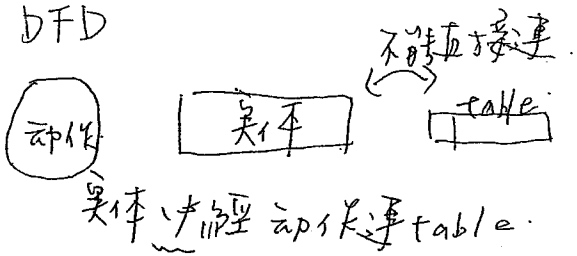 DFD
不能直接連.
动作 実体 table
実体必經动作連table.